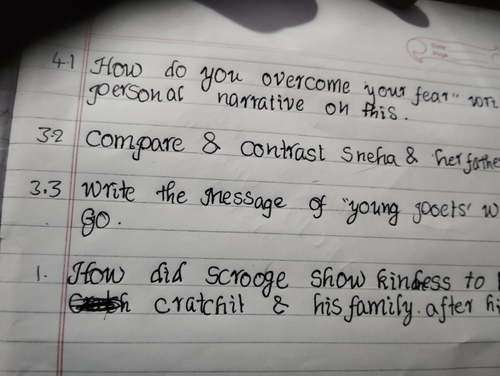 Date
Page
4.1 How do you overcome "your fear" wri
personal narrative on this.
3.2 Compare & contrast Sneha & her father
3.3 Write the message of "young poets' w
go.
1. How did scrooge show kindess to
cratchit & his family. after hi